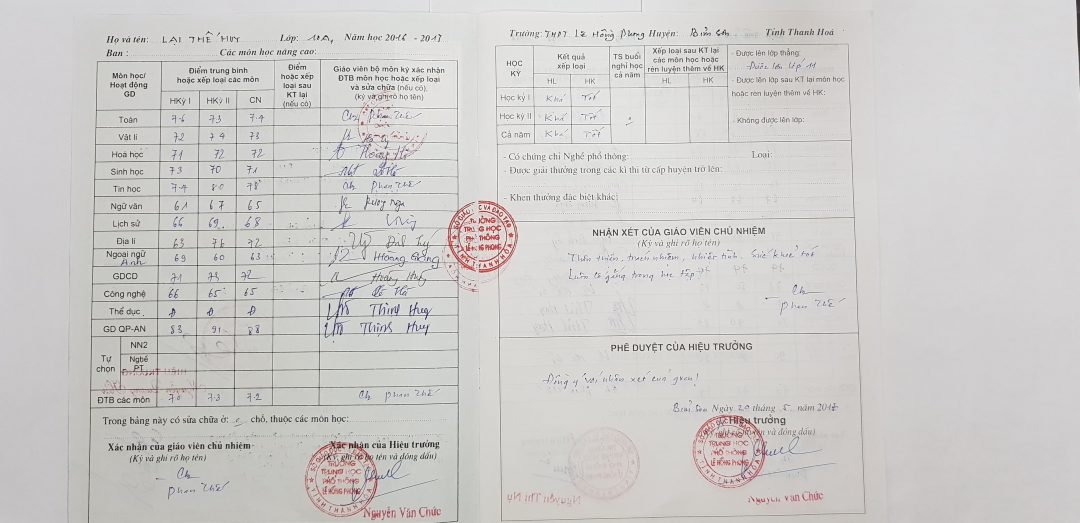 Họ và tên: LẠI THẾ HUY Lớp: 10A1 Năm học 2016 - 2017
Ban : Các môn học nâng cao:
Môn học/ Hoạt động GD
Điểm trung bình hoặc xếp loại các môn
HKỳ I HKỳ II CN
Điểm hoặc xếp loại sau KT lại (nếu có)
Giáo viên bộ môn ký xác nhận ĐTB môn học hoặc xếp loại và sửa chữa (nếu có). (ký và ghi rõ họ tên)
Toán 7.6 7.3 7.4
Vật lí 72 74 73
Hoá học 71 72 72 Hoàng Hà
Sinh học 73 70 71
Tin học 7.4 8.0 7.8
Ngữ văn 61 67 65
Lịch sử 66 69 68
Địa lí 63 76 72
Ngoại ngữ Anh 69 60 63
GDCD 71 73 72 Hoàng Huy
Công nghệ 66 65 65
Thể dục Đ Đ Đ Thịnh Huy
GD QP-AN 83 91 88 Thịnh Huy
Tự chọn
NN2
Nghề PT
ĐTB các môn 7.0 7.3 7.2
Trong bảng này có sửa chữa ở: chỗ, thuộc các môn học:
Xác nhận của giáo viên chủ nhiệm
(Ký và ghi rõ họ tên)
Xác nhận của Hiệu trưởng
(Ký, ghi rõ họ tên và đóng dấu)
TRƯỜNG
TRUNG HỌC
PHỔ THÔNG
LÊ HỒNG PHONG
TỈNH THANH HÓA
Nguyễn Văn Chức
SỞ GIÁO DỤC VÀ ĐÀO TẠO
TRƯỜNG
TRUNG HỌC
PHỔ THÔNG
LÊ HỒNG PHONG
TỈNH THANH HÓA
Trường: THPT Lê Hồng Phong Huyện: Bỉm Sơn Tỉnh Thanh Hoá
HỌC KỲ
Kết quả xếp loại
HL HK
TS buổi nghỉ học cả năm
Xếp loại sau KT lại các môn học hoặc rèn luyện thêm về HK
HL HK
- Được lên lớp thẳng:
Được lên lớp 11
- Được lên lớp sau KT lại môn học hoặc rèn luyện thêm về HK:
- Không được lên lớp:
Học kỳ I Khá Tốt
Học kỳ II Khá Tốt
Cả năm Khá Tốt
- Có chứng chỉ Nghề phổ thông: Loại:
- Được giải thưởng trong các kì thi từ cấp huyện trở lên:
- Khen thưởng đặc biệt khác:
NHẬN XÉT CỦA GIÁO VIÊN CHỦ NHIỆM
(Ký và ghi rõ họ tên)
Thân thiện, trách nhiệm, nhiệt tình. Sức khỏe tốt
Luôn cố gắng trong học tập
PHÊ DUYỆT CỦA HIỆU TRƯỞNG
Đồng ý với nhận xét của gvcn!
Bỉm Sơn Ngày 20 tháng 5 năm 2017
Hiệu trưởng
(Ký, ghi rõ họ tên và đóng dấu)
TRƯỜNG
TRUNG HỌC
PHỔ THÔNG
LÊ HỒNG PHONG
TỈNH THANH HÓA
Nguyễn Văn Chức